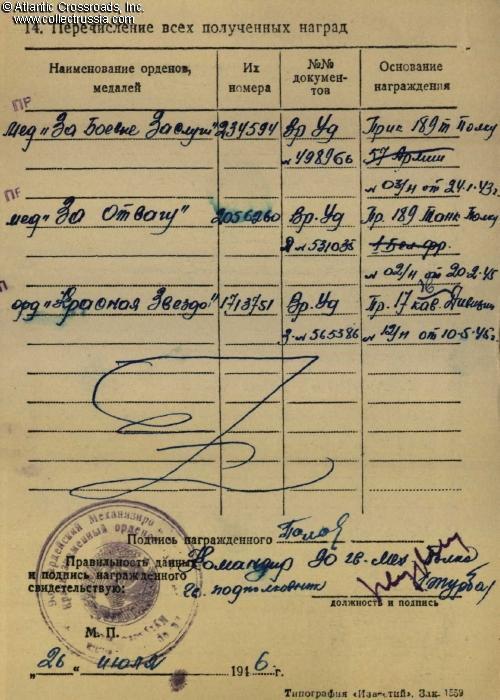 © Atlantic Crossroads, Inc.
www.collectrussia.com
14. Перечисление всех полученных наград
Наименование орденов, медалей
Их номера
№№ документов
Основание награждения
ПР
Мед "За Боевые Заслуги" 234594 Вр. Уд Прик 189 т Полку
А 498966 57 Армии
№ 03/н от 24.1.43 г
ПР
мед "За Отвагу" 2056260 Вр. Уд Пр. 189 Танк Полку
Д № 531035 1 Бел фр.
№ 02/н от 20-2-45
орд "Красная Звезда" 1713751 Вр. Уд Пр. 17 кав. Дивизии
З-№ 565386 № 12/н от 10-5-45 г.
Подпись награжденного
Правильность данных
и подпись награжденного
свидетельствую:
Командир 90 гв. мех полка
Гв. подполковник
должность и подпись
М. П.
„26“ июля 1946 г.
Типография «Известий». Зак. 1559